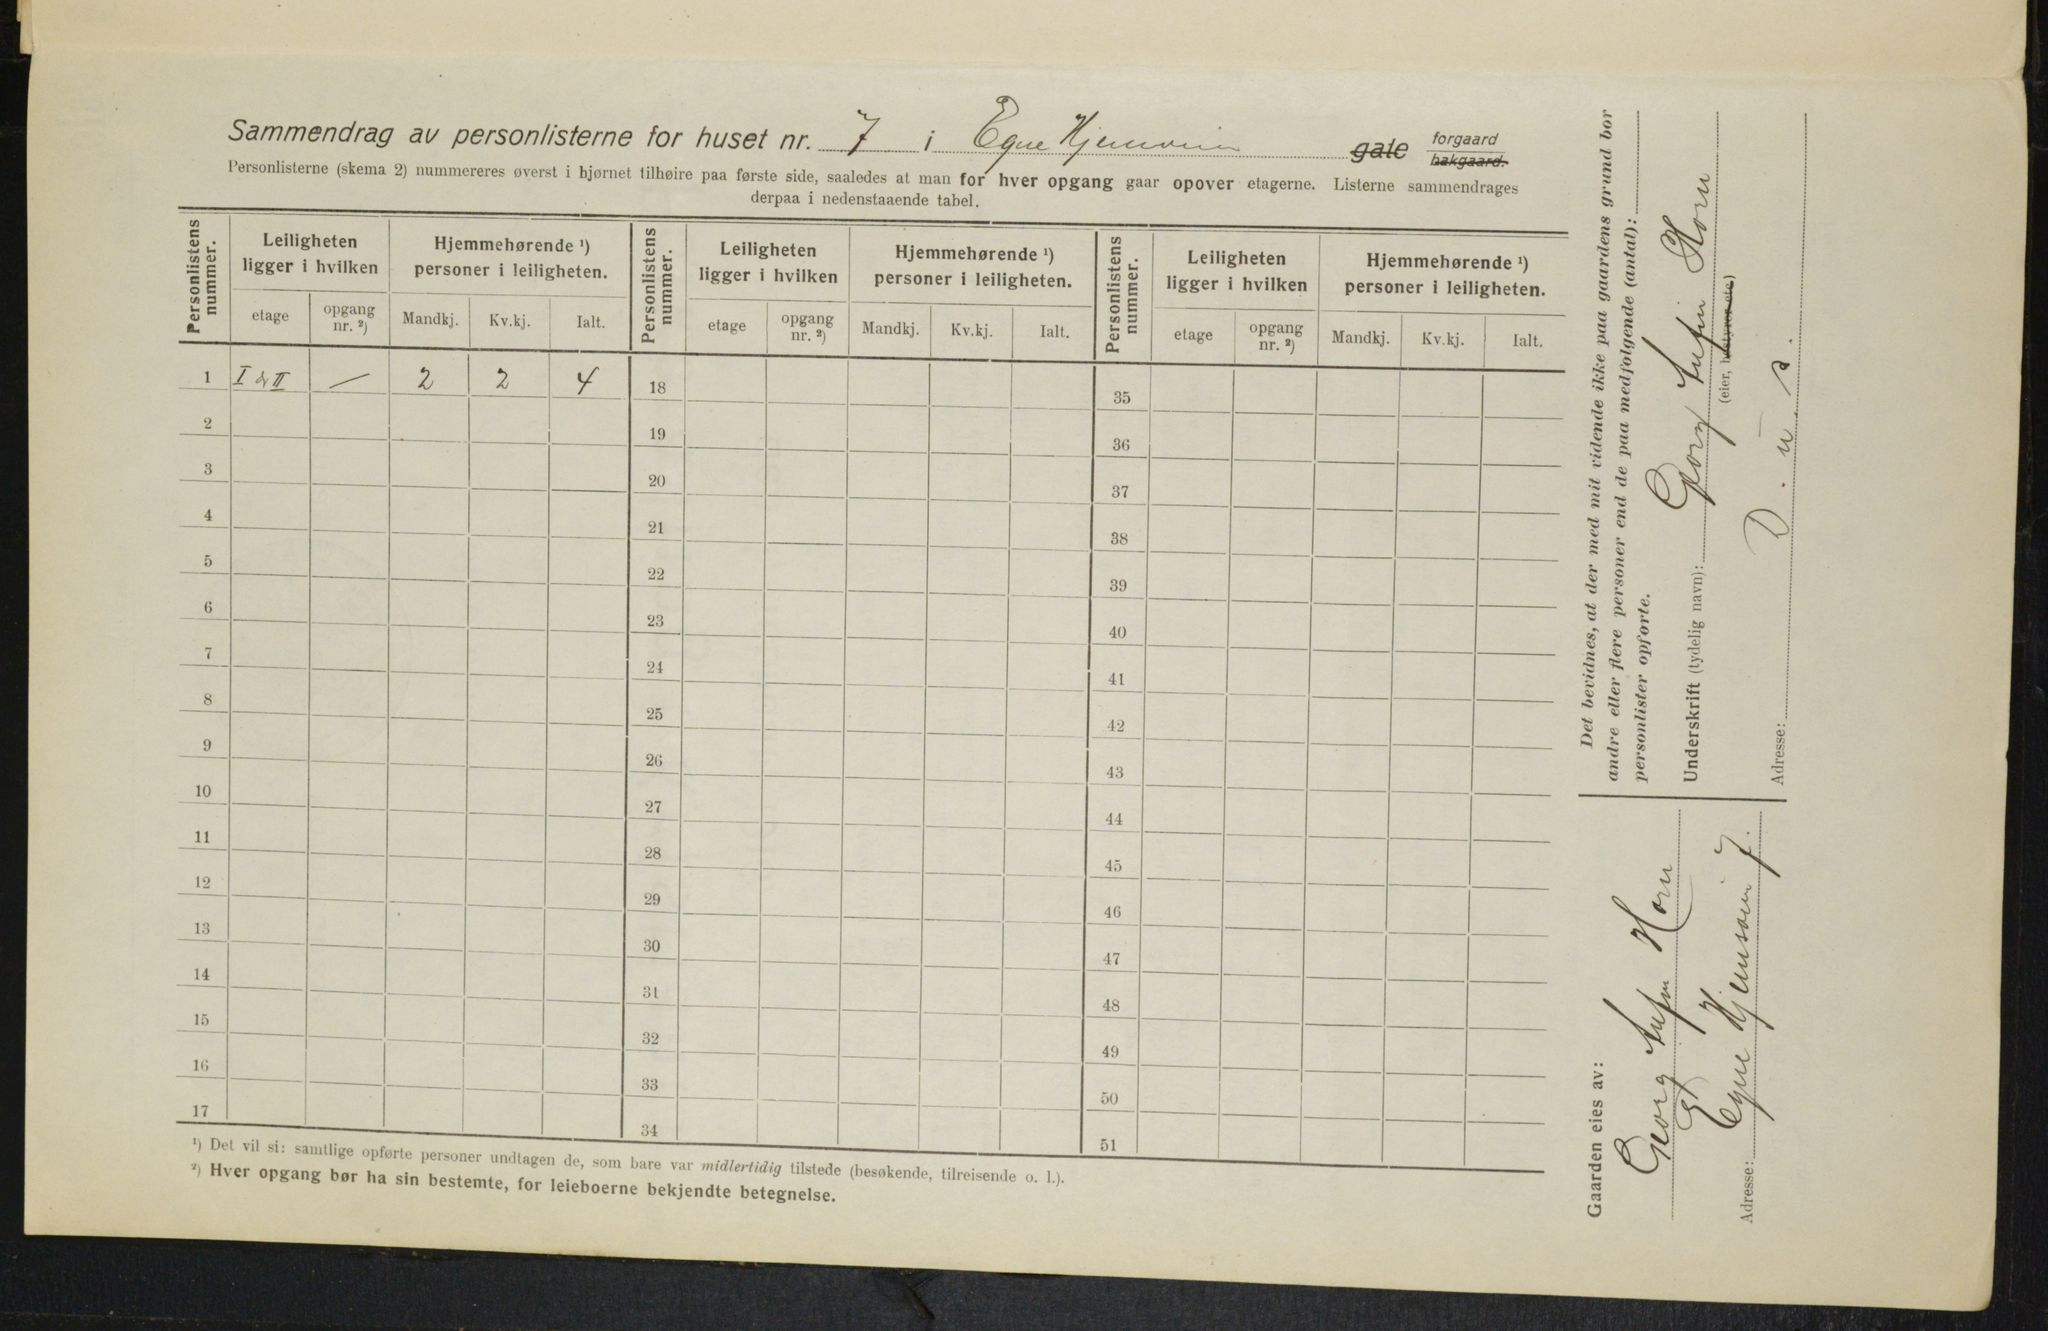 Sammendrag av personlisterne for huset nr. 7 i Egne Hjemsvein gate forgaard bakgaard.
Personlisterne (skema 2) nummereres øverst i hjørnet tilhøire paa første side, saaledes at man for hver opgang gaar opover etagerne. Listerne sammendrages
derpaa i nedenstaaende tabel.
Personlistens nummer. Leiligheten ligger i hvilken Hjemmehørende ¹) personer i leiligheten. Personlistens nummer. Leiligheten ligger i hvilken Hjemmehørende ¹) personer i leiligheten. Personlistens nummer. Leiligheten ligger i hvilken Hjemmehørende ¹) personer i leiligheten.
etage opgang nr. ²) Mandkj. Kv.kj. Ialt. etage opgang nr. ²) Mandkj. Kv.kj. Ialt. etage opgang nr. ²) Mandkj. Kv.kj. Ialt.
1 I & II — 2 2 4 18 35
2 19 36
3 20 37
4 21 38
5 22 39
6 23 40
7 24 41
8 25 42
9 26 43
10 27 44
11 28 45
12 29 46
13 30 47
14 31 48
15 32 49
16 33 50
17 34 51
¹) Det vil si: samtlige opførte personer undtagen de, som bare var midlertidig tilstede (besøkende, tilreisende o. l.).
²) Hver opgang bør ha sin bestemte, for leieboerne bekjendte betegnelse.
Gaarden eies av:
Georg Horn
Adresse: Egne Hjemsvei 7.
Det bevidnes, at der med mit vidende ikke paa gaardens grund bor
andre eller flere personer end de paa medfølgende (antal):
personlister opførte.
Underskrift (tydelig navn): Georg Horn
(eier, bestyrer ete)
Adresse: D. u. s.